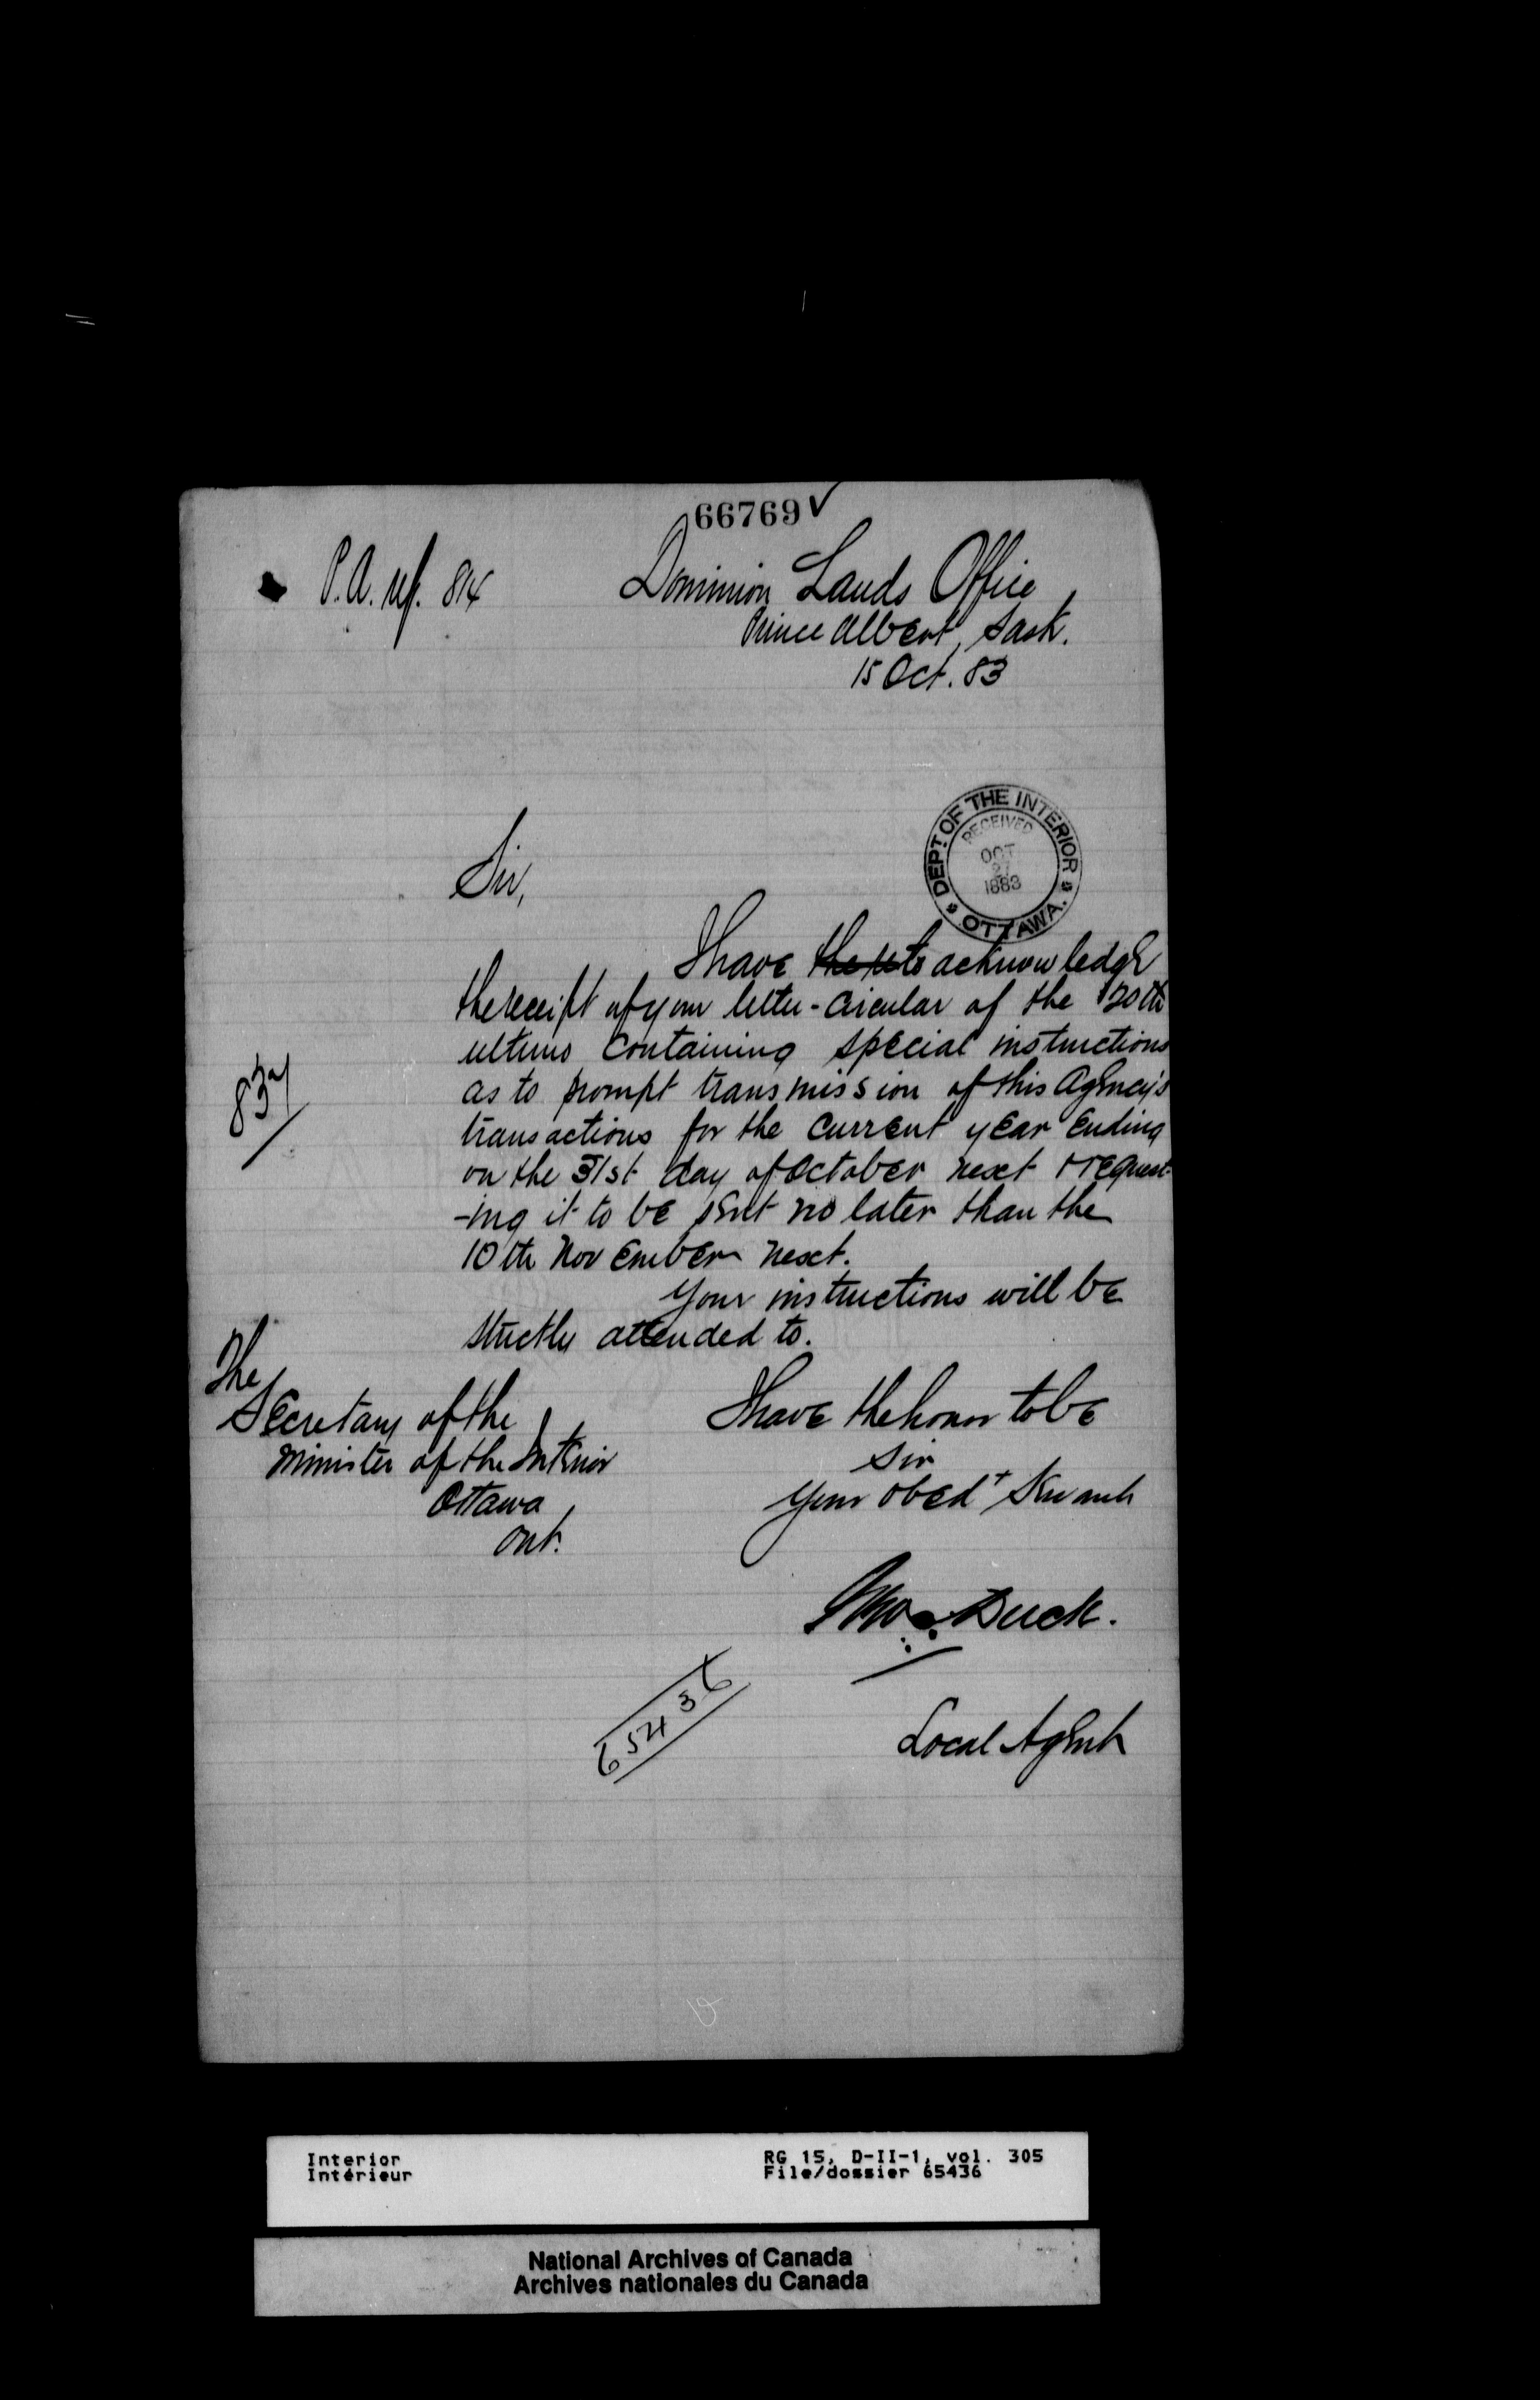 66769 ✓
P.A. ref. 814
Dominion Lands Office
Prince Albert, Sask.
15 Oct. 83
DEPT OF THE INTERIOR
RECEIVED
OCT
27
1883
OTTAWA.
Sir,
I have the re to acknowledge
the receipt of your letter-circular of the 20th
ultimo containing special instructions
as to prompt transmission of this Agency's
transactions for the current year ending
on the 31st day of October next & request-
-ing it to be sent no later than the
10th November next.
Your instructions will be
strictly attended to.
The
Secretary of the
Minister of the Interior
Ottawa
Ont.
I have the honor to be
Sir
Your obedt Servant
Jno. Duck.
Local Agent
65436
Interior
Intérieur
RG 15, D-II-1, vol. 305
File/dossier 65436
National Archives of Canada
Archives nationales du Canada